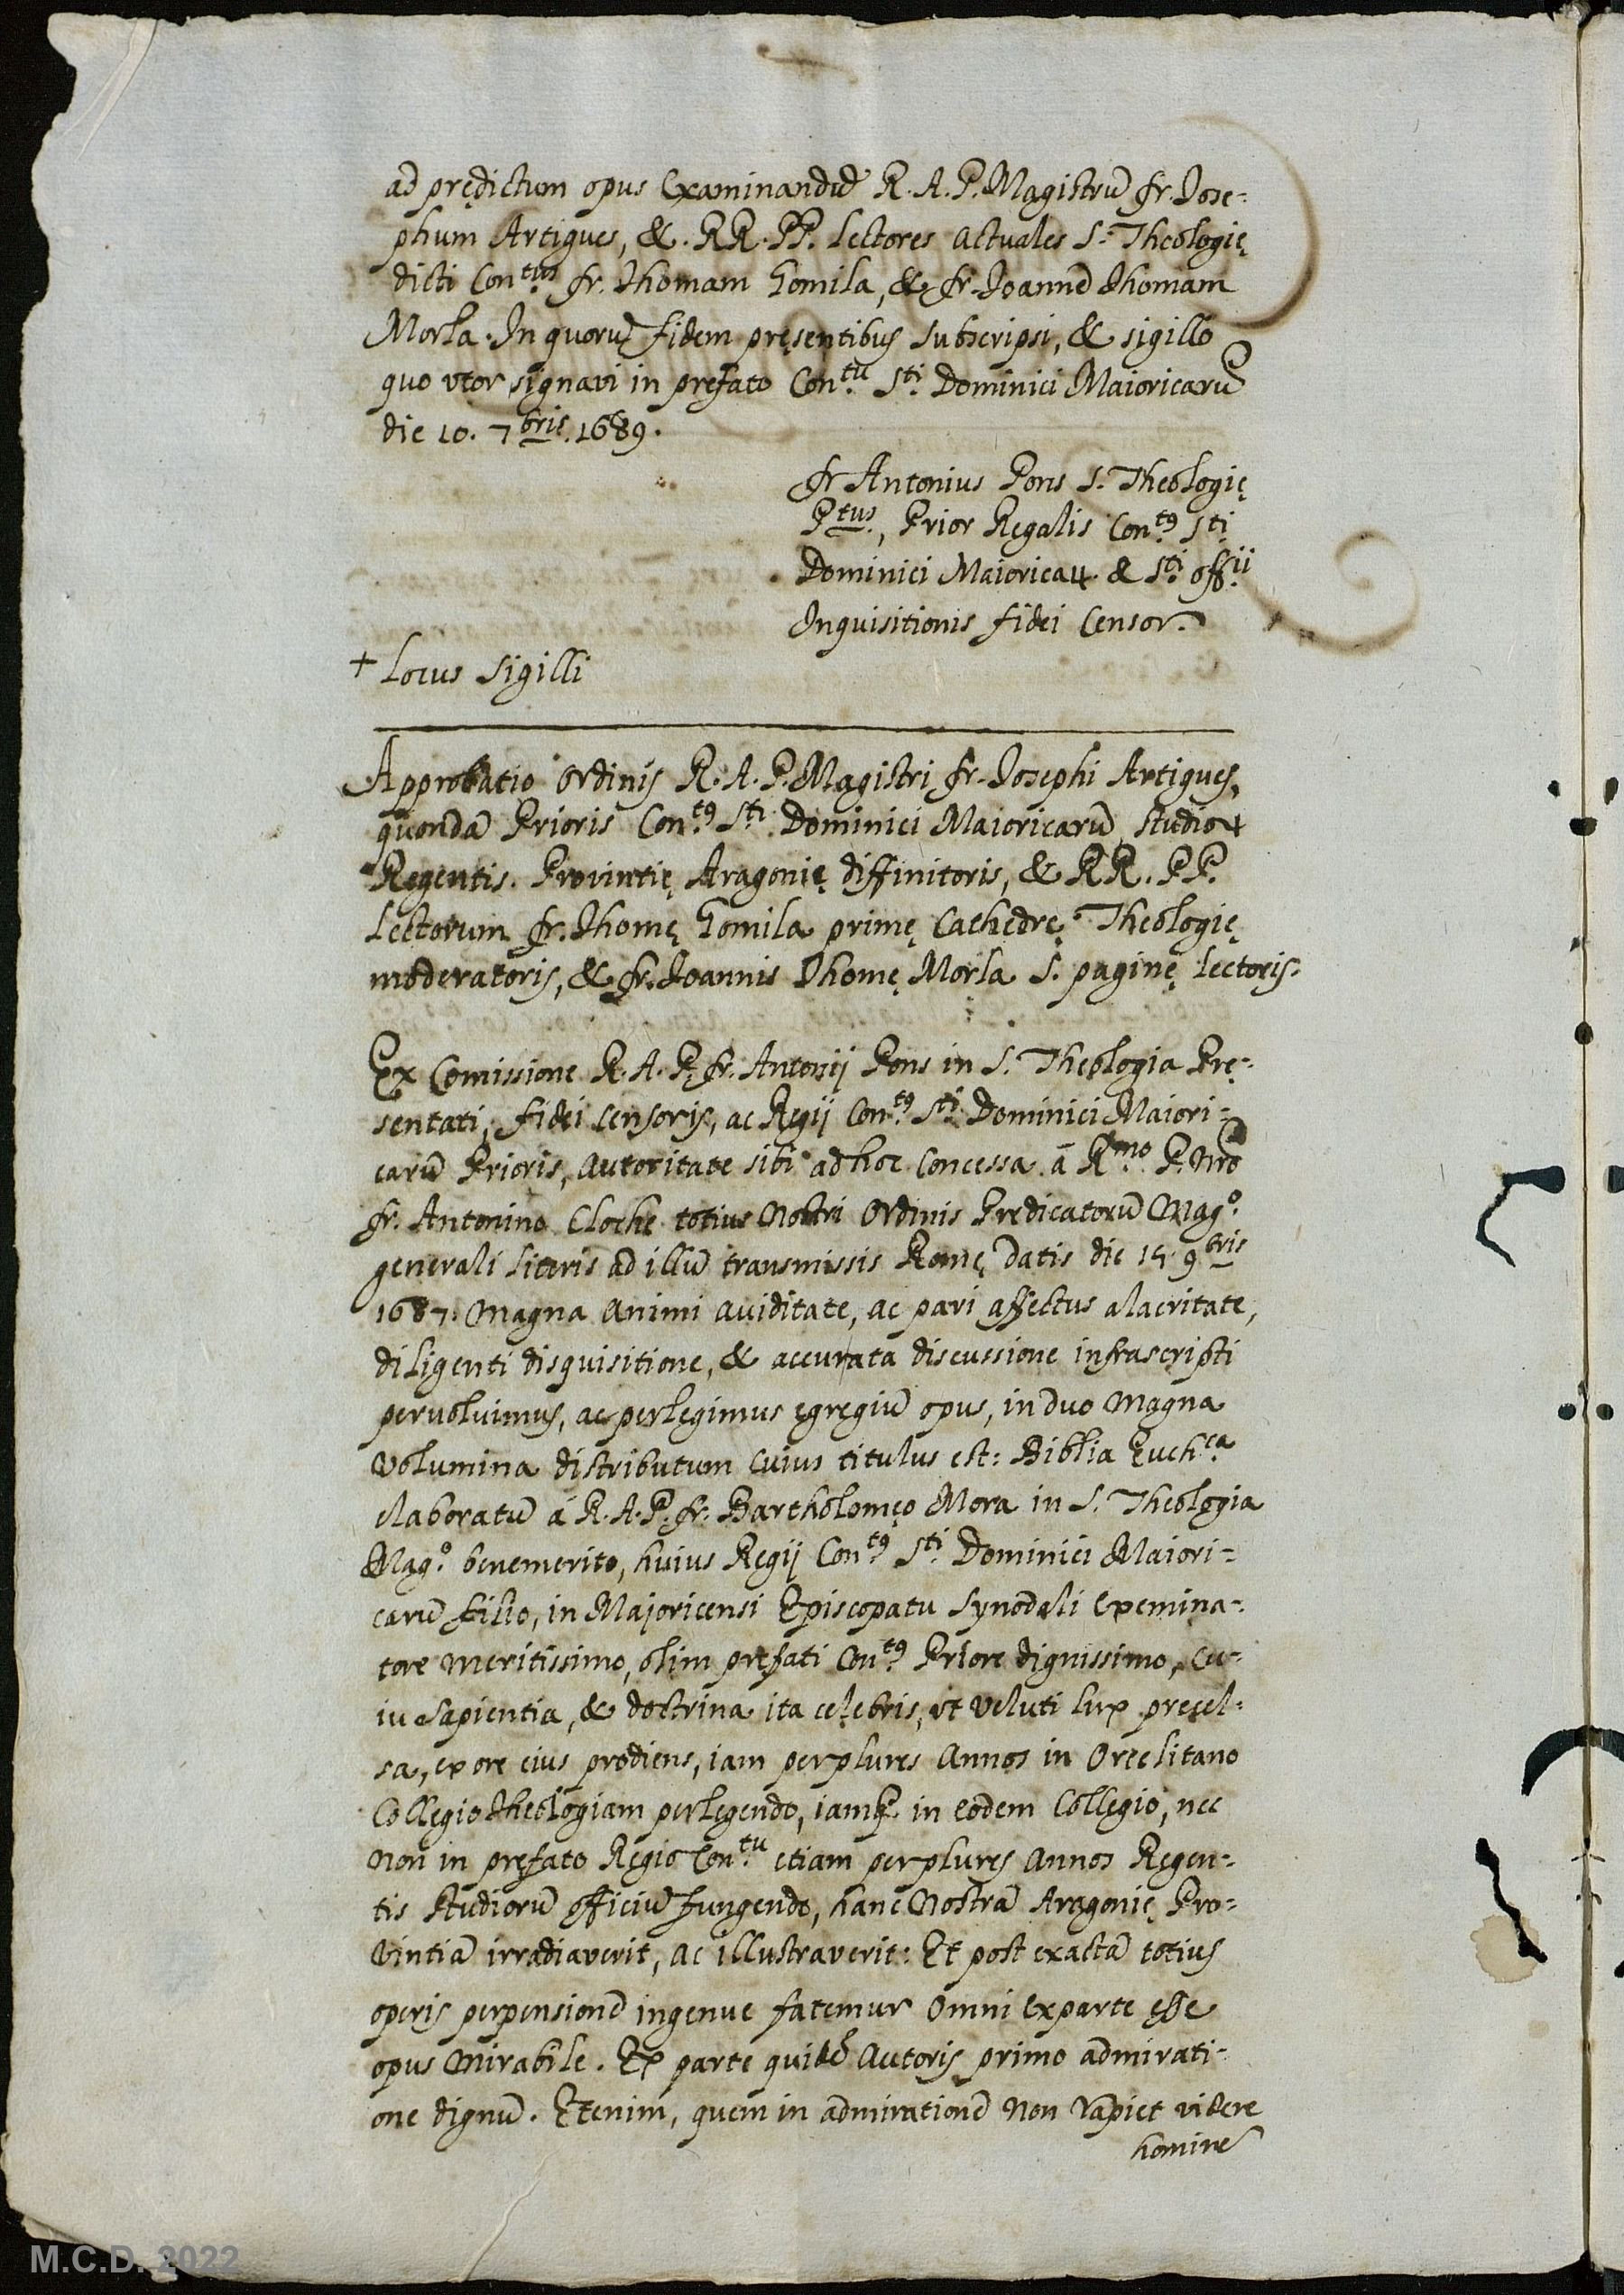 ad prędictum opus Examinandū R. A. P. Magistrū fr. Jose-
phum Artigues, &. RR. PP. Lectores actuales S. Theologię
dicti Con.tus fr. Thomam Gomila, & fr. Joannē Thomam
Morla. In quorū fidem pręsentibus subscripsi, & sigillo
quo vtor signavi in prefato Con.tu S.ti Dominici Maioricarū
die 10. 7bris. 1689.
fr Antonius Pons S. Theologię
Ptus., Prior Regalis Con.tꝰ S.ti
Dominici Maioricaꝝ. & S.ti offii
Inquisitionis fidei Censor.
+ Locus Sigilli
Approbatio Ordinis R. A. P. Magistri fr. Josephi Artigues,
quondā Prioris Con.tꝰ S.ti Dominici Maioricarū, studioꝝ
Regentis. Provintię Aragonię diffinitoris, & RR. PP.
Lectorum fr. Thomę Gomila primę Cathedrę Theologię
moderatoris, & fr. Joannis Thomę Morla S. paginę Lectoris.
Ex Comissione R. A. P. fr. Antonij Pons in S. Theologia Prę-
sentati, fidei censoris, ac Regij Con.tꝰ S.ti Dominici Maiori-
carū Prioris, autoritate sibi ad hoc Concessa á R.mo P. Nrō
fr. Antonino Cloche totius Nostri Ordinis Predicatorū Mag.o
generali literis ad illū transmissis Romę datis die 15. 9bris
1687. Magna animi aviditate, ac pari affectus alacritate,
diligenti disquisitione, & accurata discussione infrascripti
pervolvimus, ac perlegimus egregiū opus, in duo Magna
Volumina distributum cuius titulus est: Biblia Euch.ca
elaboratū á R. A. P. fr. Bartholomęo Mora in S. Theologia
Mag.o benemerito, huius Regij Con.tꝰ S.ti Dominici Maiori-
carū filio, in Majoricensi Episcopatu Synodali Exemina-
tore meritissimo, olim prefati Con.tꝰ Priore dignissimo, cu-
iu sapientia, & doctrina ita celebris, vt veluti lux precel-
sa, ex ore eius prodiens, iam per plures Annos in Orcelitano
Collegio Theologiam perlegendo, iamq; in eodem Collegio, nec
Non in pręfato Regio Con.tu etiam per plures Annos Regen-
tis Studiorū officiū fungendo, hanc Nostrā Aragonię Pro-
Vintiā irradiaverit, ac illustraverit: Et post exactā totius
operis perpensionē ingenue fatemur omni ex parte esse
opus Mirabile. Ex parte quidē Autoris primo admirati-
one dignū. Etenim, quem in admirationē Non rapiet videre
hominē
M.C.D. 2022